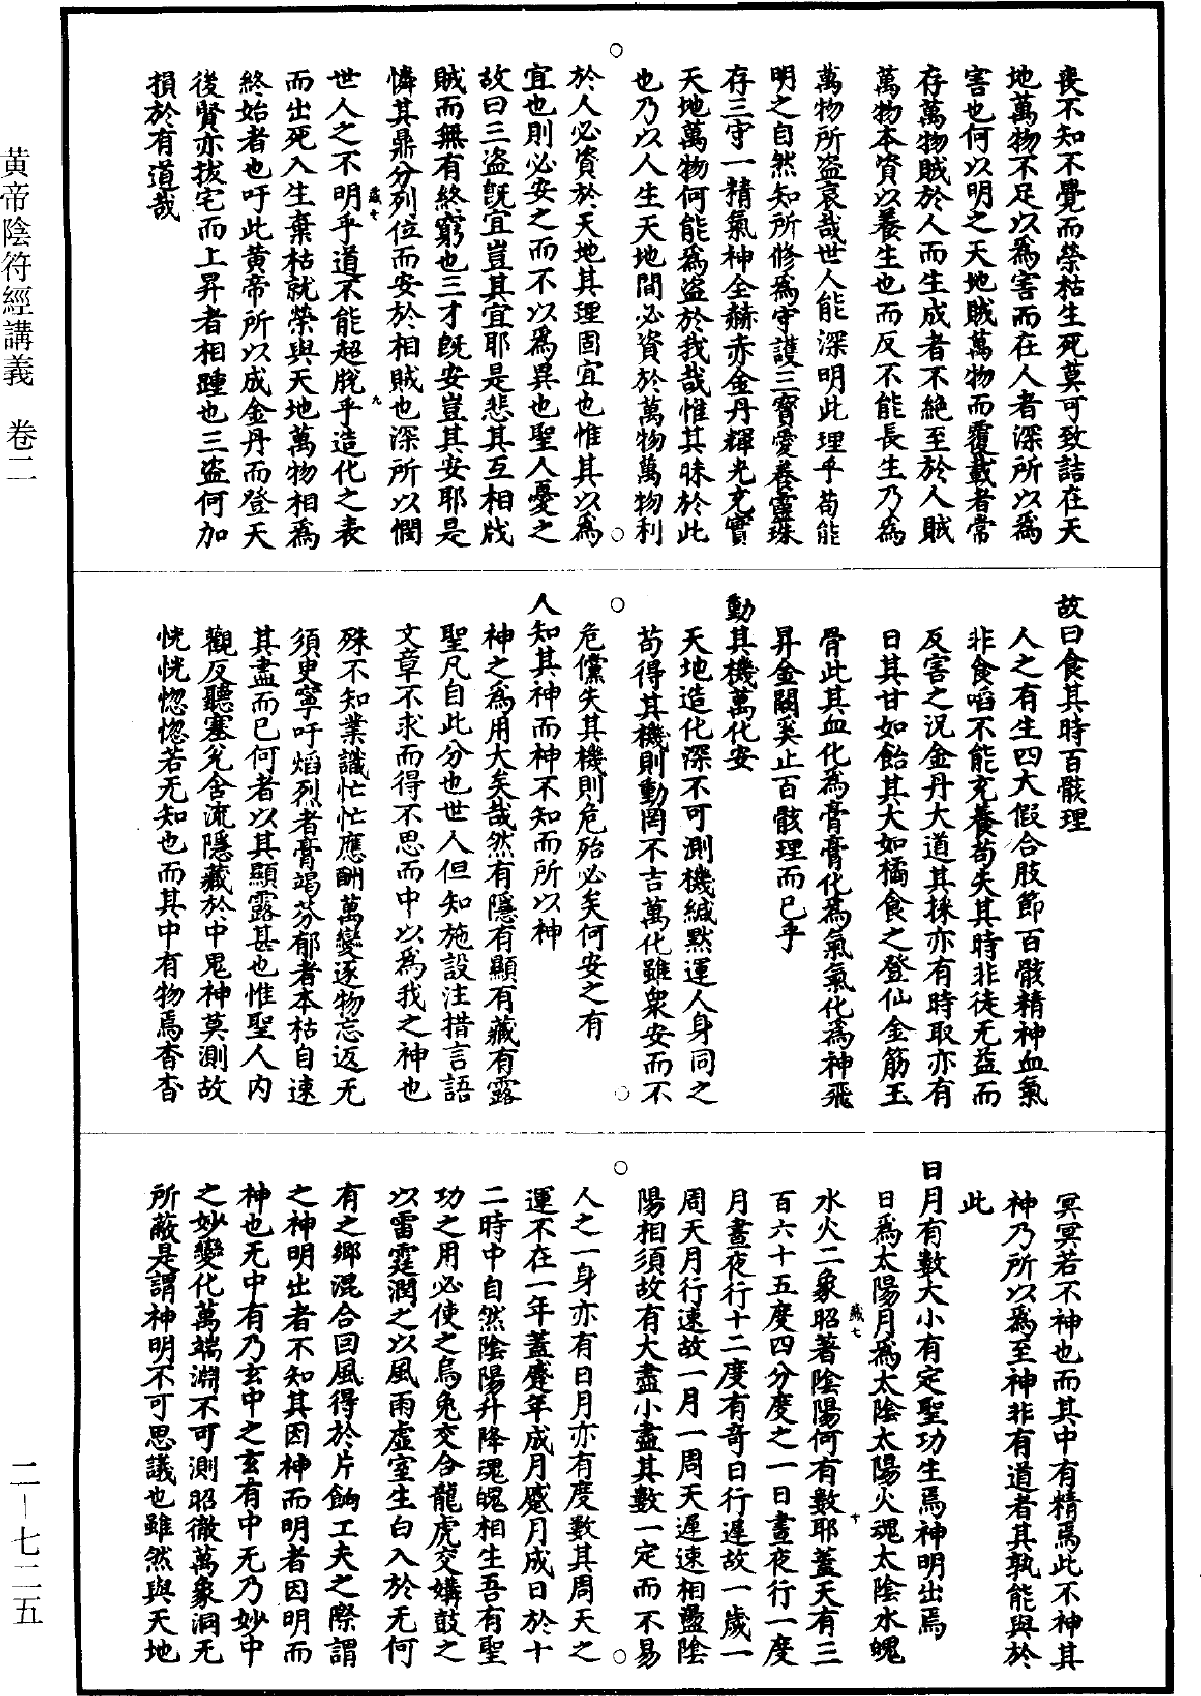 喪不知不覺而榮枯生死莫可致詰在天
地萬物不足以為害而在人者深所以為
害也何以明之天地賊萬物而覆載者常
存萬物賊於人而生成者不絕至於人賊
萬物本資以養生也而反不能長生乃為
萬物所盜哀哉世人能深明此理乎苟能
明之自然知所修為守護三寶愛養靈珠
存三守一精氣神全赫赤金丹輝光充實
天地萬物何能為盜於我哉惟其昧於此
也乃以人生天地間必資於萬物萬物利
於人必資於天地其理固宜也惟其以為
宜也則必安之而不以為異也聖人憂之
故曰三盜既宜豈其宜耶是悲其互相戕
賊而無有終窮也三才既安豈其安耶是
憐其鼎分列位而安於相賊也深所以憫
九
世人之不明乎道不能超脫乎造化之表
而出死入生棄枯就榮與天地萬物相為
終始者也吁此黃帝所以成金丹而登天
後賢亦拔宅而上昇者相踵也三盜何加
損於有道哉
故曰食其時百骸理
人之有生四大假合肢節百骸精神血氣
非食㗖不能充養苟失其時非徒无益而
反害之況金丹大道其採亦有時取亦有
日其甘如飴其大如橘食之登仙金筋玉
骨此其血化為膏膏化為氣氣化為神飛
昇金闕奚止百骸理而已乎
動其機萬化安
天地造化深不可測機緘默運人身同之
苟得其機則動罔不吉萬化雖衆安而不
危儻失其機則危殆必矣何安之有
人知其神而神不知而所以神
神之為用大矣哉然有隱有顯有藏有露
聖凡自此分也世人但知施設注措言語
文章不求而得不思而中以為我之神也
殊不知業識忙忙應酬萬變逐物忘返无
須臾寧吁焰烈者膏竭芬郁者本枯自速
其盡而已何者以其顯露甚也惟聖人內
觀反聽塞兌含流隱藏於中鬼神莫測故
恍恍惚惚若无知也而其中有物焉杳杳
冥冥若不神也而其中有精焉此不神其
神乃所以為至神非有道者其孰能與於
此
日月有數大小有定聖功生焉神明出焉
日為太陽月為太陰太陽火魂太陰水魄
水火二象昭著陰陽何有數耶蓋天有三
十
百六十五度四分度之一日晝夜行一度
月晝夜行十二度有奇日行遲故一歲一
周天月行速故一月一周天遲速相盪陰
陽相須故有大盡小盡其數一定而不易
人之一身亦有日月亦有度數其周天之
運不在一年蓋蹙年成月蹙月成日於十
二時中自然陰陽升降魂魄相生吾有聖
功之用必使之烏兔交合龍虎交媾鼓之
以雷霆潤之以風雨虛室生白入於无何
有之鄉混合回風得於片餉工夫之際謂
之神明出者不知其因神而明者因明而
神也无中有乃玄中之玄有中无乃妙中
之妙變化萬端淵不可測昭徹萬象洞无
所蔽是謂神明不可思議也雖然與天地
黃帝陰符經講義　卷二
二—七二五